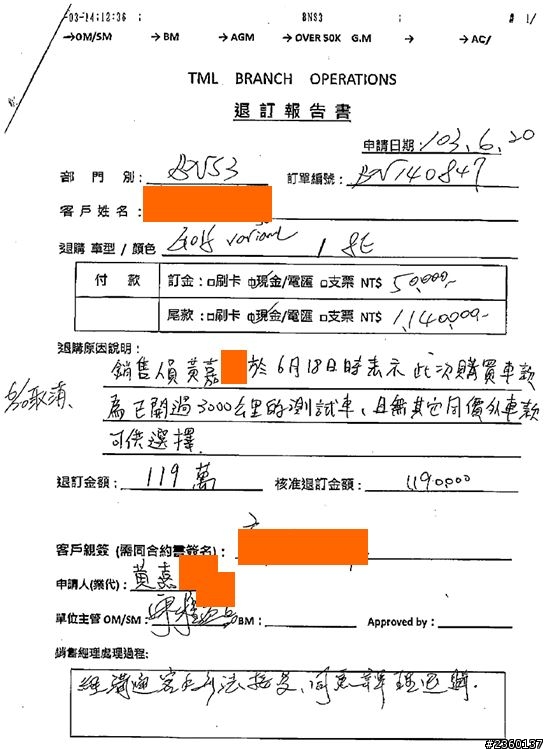 -03-14;12:36 ; BNS3 ; # 1/
→OM/SM → BM → AGM → OVER 50K G.M → → AC/
TML BRANCH OPERATIONS
退訂報告書
申請日期:103.6.20
部門別: BNS3 訂單編號: BN140847
客戶姓名:
退購 車型 / 顏色 Golf variant / 8E
付款 訂金:□刷卡 ☑現金/電匯 □支票 NT$ 50,000-
尾款:□刷卡 ☑現金/電匯 □支票 NT$ 1,140,000-
退購原因說明:
銷售人員黃嘉 於6月18日時表示此次購買車款
為已開過3000公里的測試車、且無其它同價位車款
可供選擇.
6/20取消、
退訂金額: 119萬 核准退訂金額: 1190000
客戶親簽 (需同合約書簽名):
申請人(業代): 黃嘉
單位主管 OM/SM: BM: Approved by:
銷售經理處理過程:
經溝通客戶無法接受,同意辦理退購.
#2360137